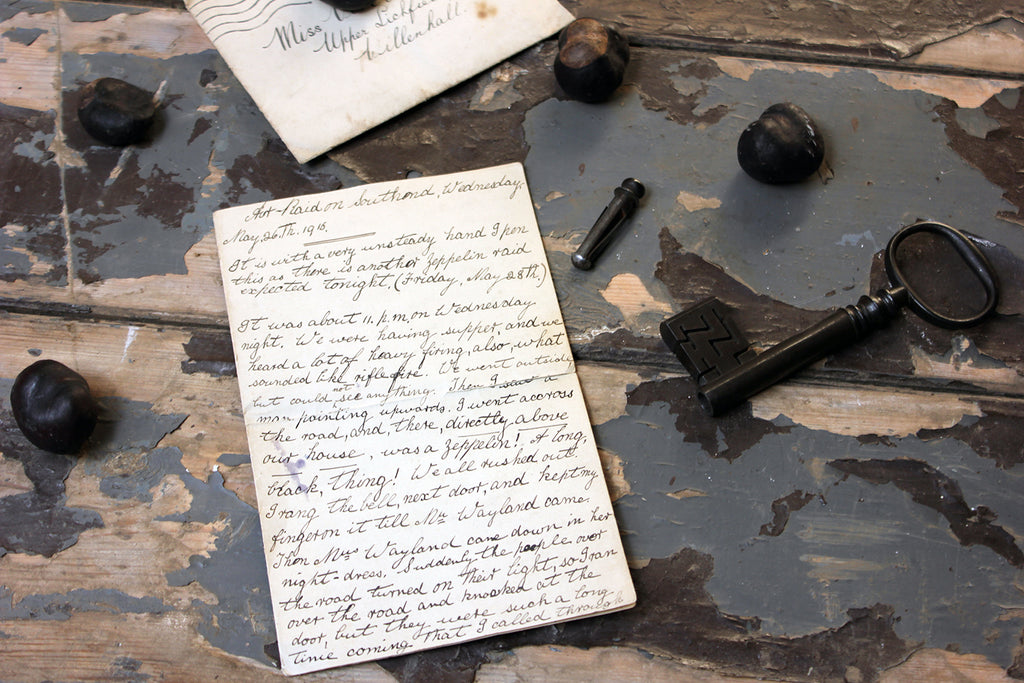 Miss
Upper Lichfie
Willenhall.
Air-Raid on Southend, Wednesday,
May, 26.Th. 1915.
It is with a very unsteady hand I pen
this as there is another zeppelin raid
expected tonight. (Friday, May 28Th.)
It was about 11. p.m, on Wednesday
night. We were having supper, and we
heard a lot of heavy firing, also, what
sounded like rifle fire. We went outside
but could not see anything. Then I saw a
man pointing upwards. I went accross
the road, and, there, directly above
our house, was a zeppelin! A long,
black, thing! We all rushed out.
I rang the bell, next door, and kept my
finger on it till Mr Wayland came.
Then Mrs Wayland came down in her
night-dress. Suddenly the people over
the road turned on their light, so I ran
over the road and knocked at the
door, but they were such a long
time coming that I called through